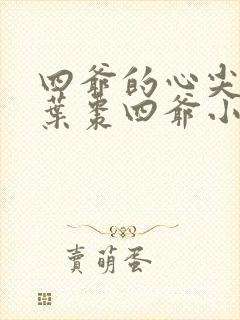 四爺的心尖
葉棗四爺小
賣萌蛋